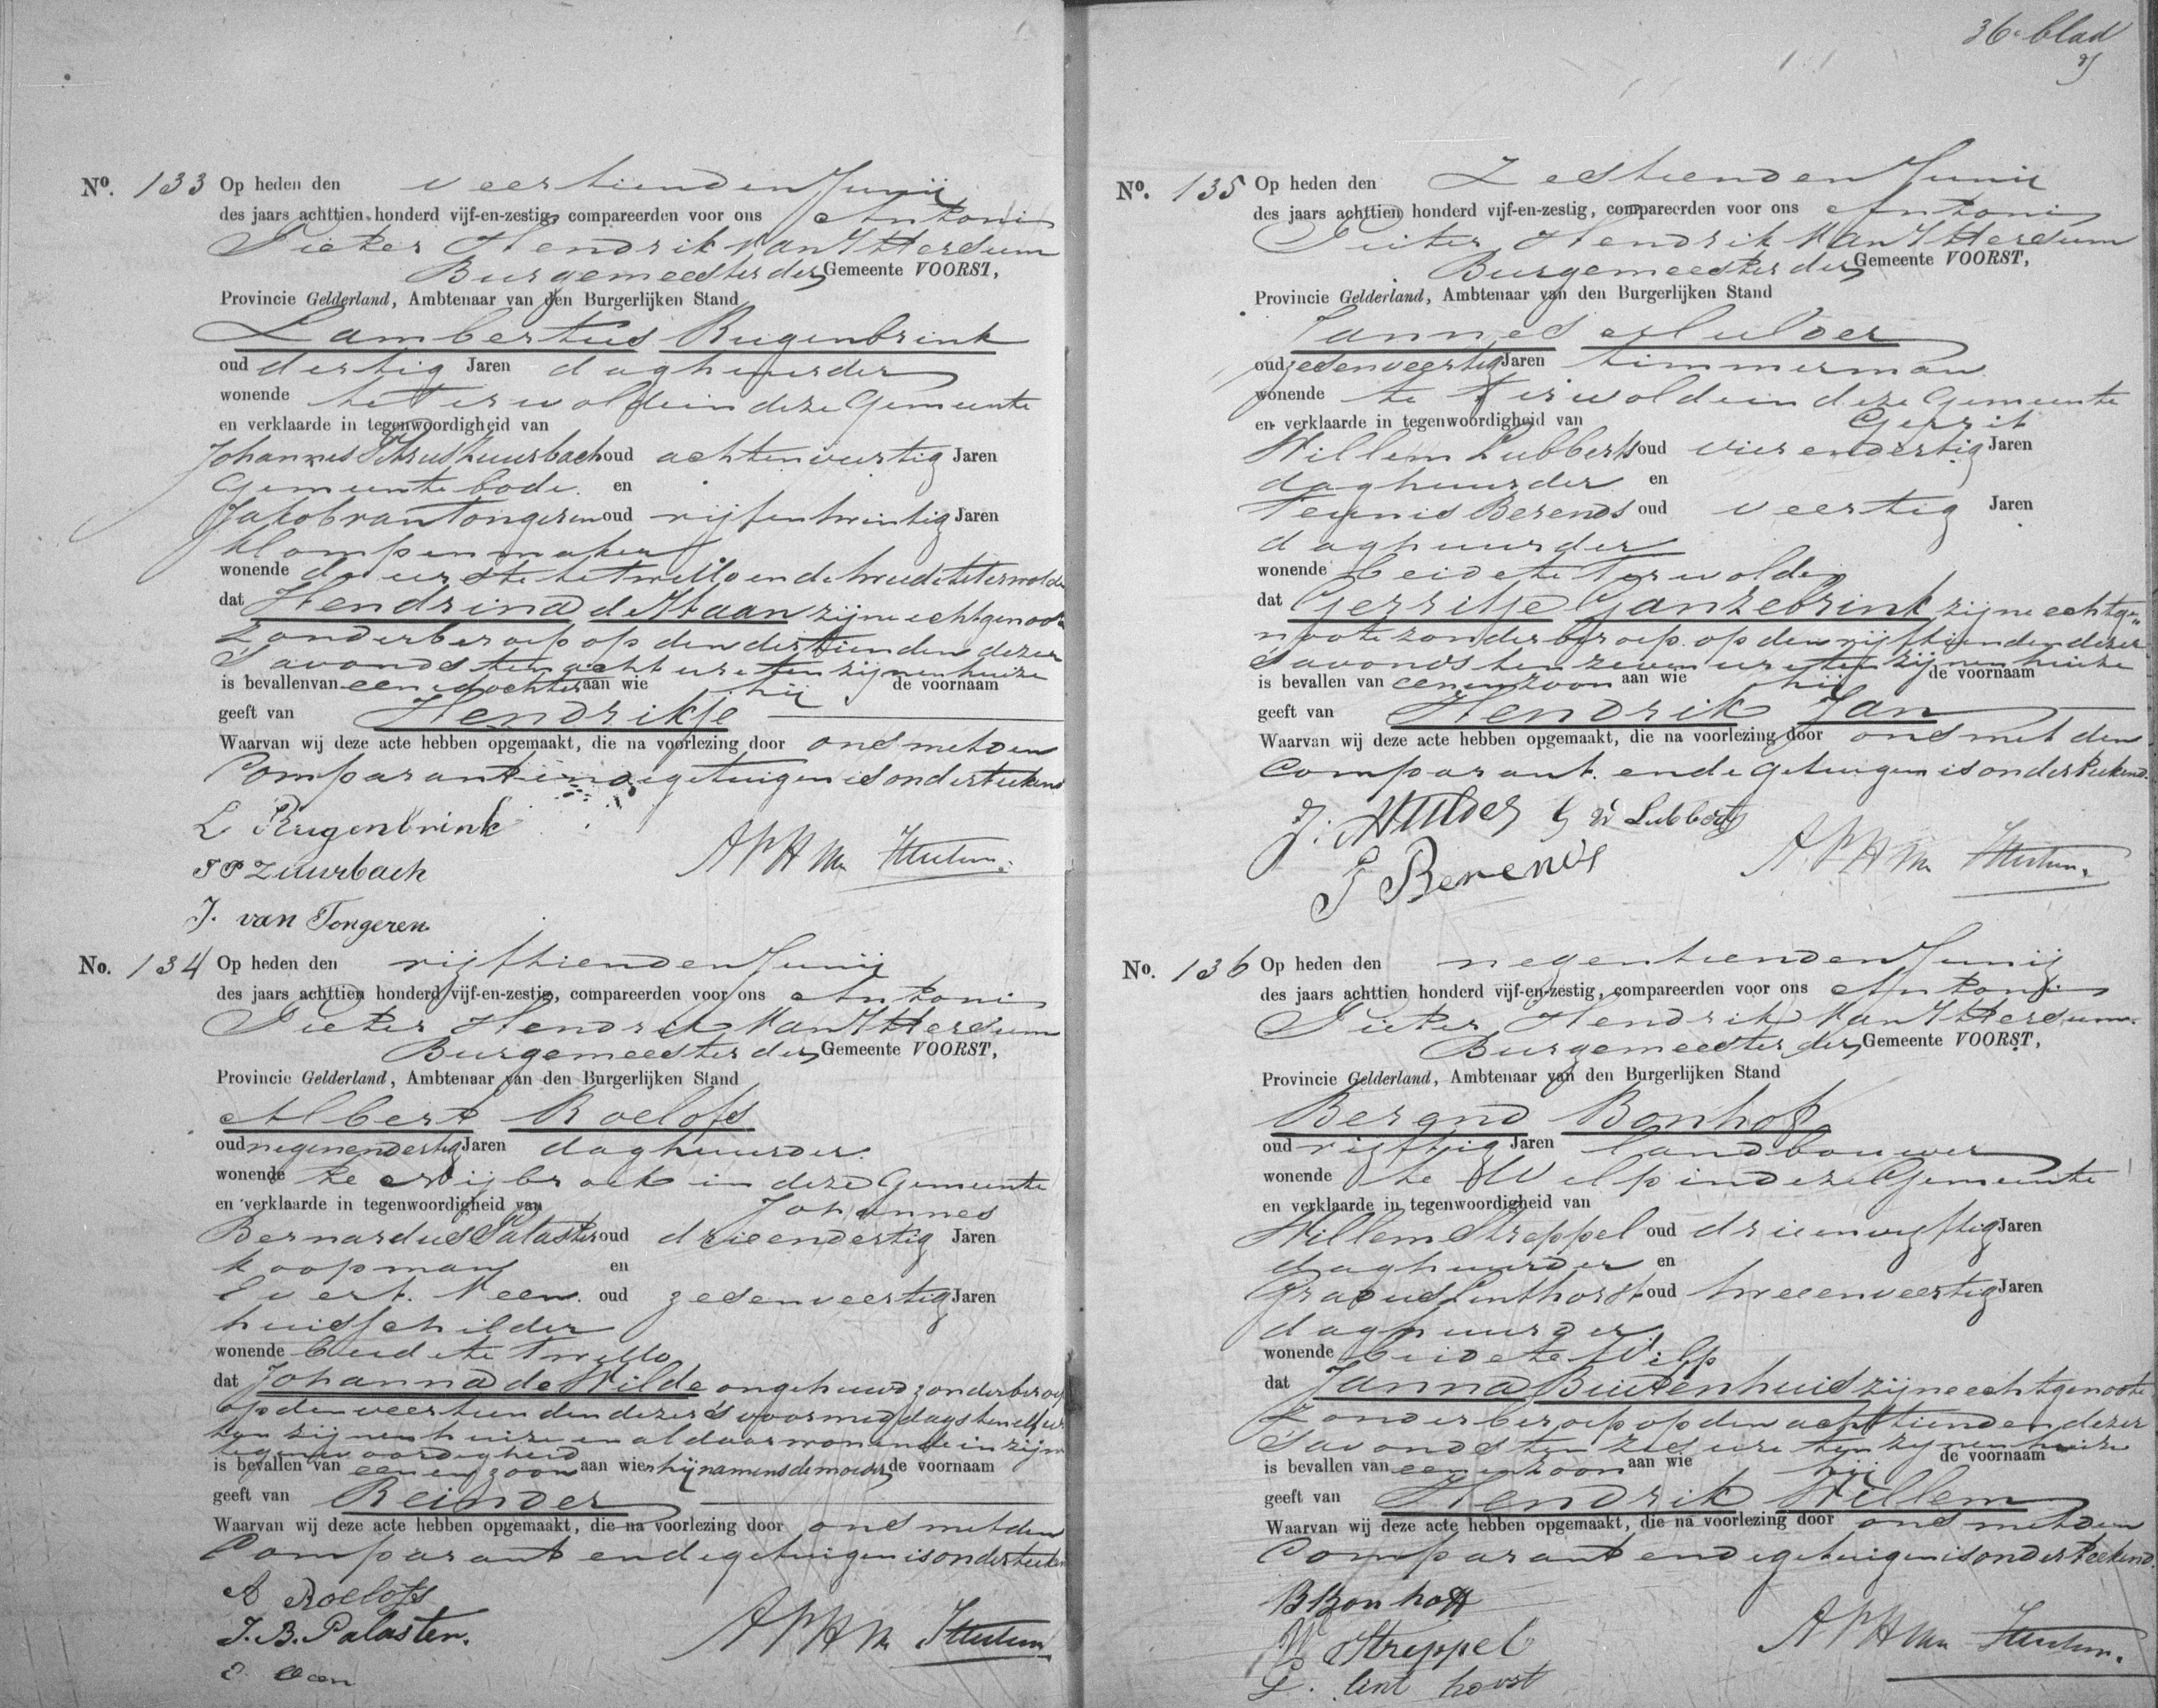 36e blad
No. 133 Op heden den veertienden Junij
des jaars achttien honderd vijf-en-zestig, compareerden voor ons Antoni
Pieter Hendrik van Ittersum
Burgemeester der Gemeente VOORST,
Provincie Gelderland, Ambtenaar van den Burgerlijken Stand
Lambertus Rugenbrink
oud dertig Jaren daghuurder
wonende te Terwolde in deze Gemeente
en verklaarde in tegenwoordigheid van
Johannes Zuurbach oud achtenveertig Jaren
Gemeente bode en
Jakob van Tongeren oud vijfentwintig Jaren
klompenmaker
wonende de eerste te Twello en de tweede te Terwolde
dat Hendrina de Haan zijne echtgenoote
zonder beroep op den dertienden dezer
s'avonds ten acht ure ten zijnen huize
is bevallen van eene dochter aan wie hij de voornaam
geeft van Hendrikje
Waarvan wij deze acte hebben opgemaakt, die na voorlezing door ons met den
Comparant en de getuigen is onderteekend
L Rugenbrink
J P Zuurbach
APH van Ittersum
J. van Tongeren
No. 134 Op heden den vijftienden Junij
des jaars achttien honderd vijf-en-zestig, compareerden voor ons Antoni
Pieter Hendrik van Ittersum
Burgemeester der Gemeente VOORST,
Provincie Gelderland, Ambtenaar van den Burgerlijken Stand
Albert Roelofs
oud negenendertig Jaren daghuurder
wonende te Nijbroek in deze Gemeente
en verklaarde in tegenwoordigheid van Johannes
Bernardus Palaster oud drieendertig Jaren
koopman en
Evert Veen oud zesenveertig Jaren
huisschilder
wonende beide te Twello
dat Johanna de Wilde ongehuwd zonder beroep
op den veertienden dezer s'voormiddags ten elf ure
ten zijnen huize en aldaar wonende in zijne
tegenwoordigheid
is bevallen van eenen zoon aan wien hij namens de moeder de voornaam
geeft van Reinder
Waarvan wij deze acte hebben opgemaakt, die na voorlezing door ons met den
Comparant en de getuigen is onderteekend
A Roelofs
J. B. Palaster.
APH van Ittersum
E Veen
No. 135 Op heden den Zestienden Junij
des jaars achttien honderd vijf-en-zestig, compareerden voor ons Antoni
Pieter Hendrik van Ittersum
Burgemeester der Gemeente VOORST,
Provincie Gelderland, Ambtenaar van den Burgerlijken Stand
Jannes Mulder
oud zesenveertig Jaren timmerman
wonende te Terwolde in deze Gemeente
en verklaarde in tegenwoordigheid van Gerrit
Willem Lubberts oud vierendertig Jaren
daghuurder en
Teunis Berends oud veertig Jaren
daghuurder
wonende beide te Terwolde
dat Gerritje Ganzebrink zijne echtge-
noote zonder beroep op den vijftienden dezer
s'avonds ten zeven ure ten zijnen huize
is bevallen van eenen zoon aan wie hij de voornaam
geeft van Hendrik Jan
Waarvan wij deze acte hebben opgemaakt, die na voorlezing door ons met den
Comparant en de getuigen is onderteekend.
J. Mulder G W Lubberts
T Berends
APH van Ittersum
No. 136 Op heden den negentienden Junij
des jaars achttien honderd vijf-en-zestig, compareerden voor ons Antoni
Pieter Hendrik van Ittersum
Burgemeester der Gemeente VOORST,
Provincie Gelderland, Ambtenaar van den Burgerlijken Stand
Berend Bonhof
oud vijftig Jaren landbouwer
wonende te Wilp in deze Gemeente
en verklaarde in tegenwoordigheid van
Willem Streppel oud drieenvijftig Jaren
daghuurder en
Gradus Linthorst oud tweeenveertig Jaren
daghuurder
wonende beide te Wilp
dat Janna Buitenhuis zijne echtgenoote
zonder beroep op den achttienden dezer
s'avonds ten zes ure ten zijnen huize
is bevallen van eenen zoon aan wie hij de voornaam
geeft van Hendrik Willem
Waarvan wij deze acte hebben opgemaakt, die na voorlezing door ons met den
Comparant en de getuigen is onderteekend.
B Bonhoff
W Streppel
APH van Ittersum.
G. lint horst